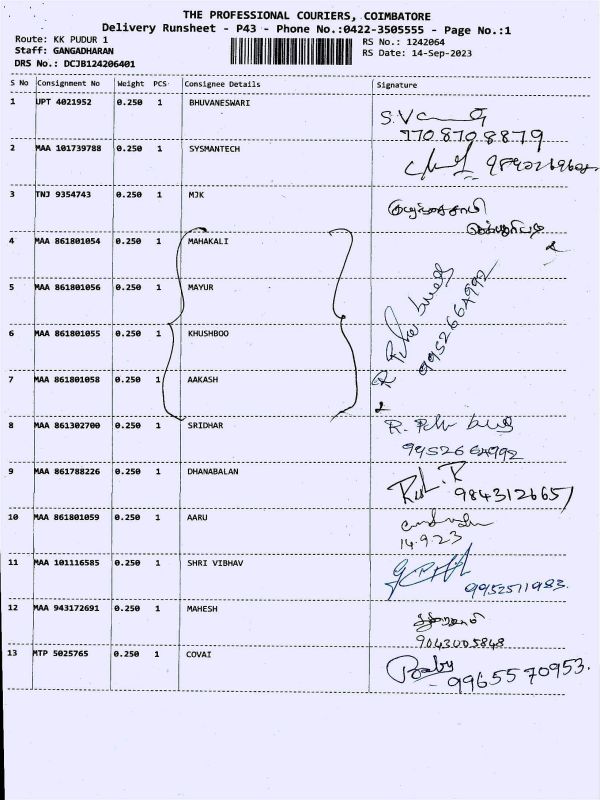 THE PROFESSIONAL COURIERS, COIMBATORE
Delivery Runsheet - P43 - Phone No.:0422-3505555 - Page No.:1
Route: KK PUDUR 1 RS No.: 1242064
Staff: GANGADHARAN RS Date: 14-Sep-2023
DRS No.: DCJB124206401
S No Consignment No Weight PCS Consignee Details Signature
1 UPT 4021952 0.250 1 BHUVANESWARI
7708708879
2 MAA 101739788 0.250 1 SYSMANTECH
3 TNJ 9354743 0.250 1 MJK
4 MAA 861801054 0.250 1 MAHAKALI
5 MAA 861801056 0.250 1 MAYUR
6 MAA 861801055 0.250 1 KHUSHBOO
9952664992
7 MAA 861801058 0.250 1 AAKASH
8 MAA 861302700 0.250 1 SRIDHAR
9952664992
9 MAA 861788226 0.250 1 DHANABALAN
9843126657
10 MAA 861801059 0.250 1 AARU
14.9.23
11 MAA 101116585 0.250 1 SHRI VIBHAV
9952571983.
12 MAA 943172691 0.250 1 MAHESH
9043005848
13 MTP 5025765 0.250 1 COVAI
Baby
- 9965570953.